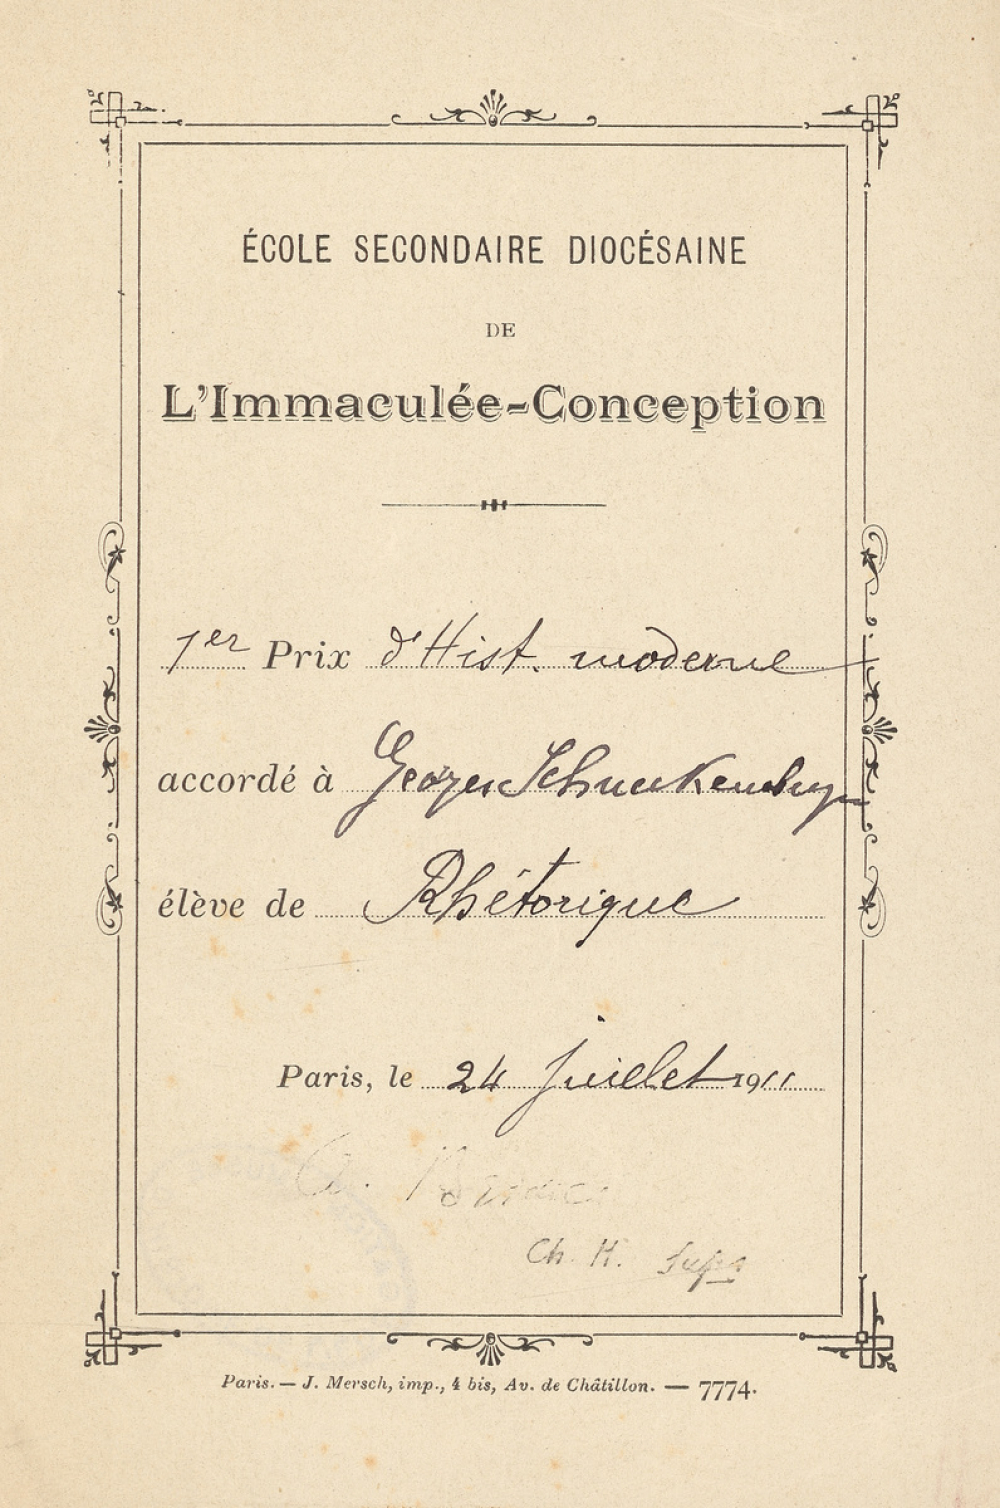 ÉCOLE SECONDAIRE DIOCÉSAINE
DE
L'Immaculée-Conception
1er Prix d'Hist. moderne
accordé à Georges
élève de Rhétorique
Paris, le 24 juillet 1911
Ch. H. Supr
Paris. — J. Mersch, imp., 4 bis, Av. de Châtillon. — 7774.